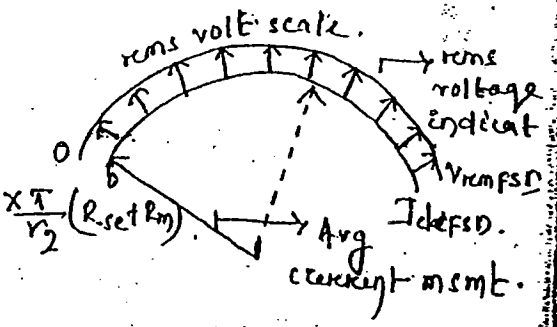 rms volt scale.
rms
voltage
indicat
0
0
VrmFSD
IdcFSD.
× π/r2 (Rse+Rm)
Avg
current msmt.